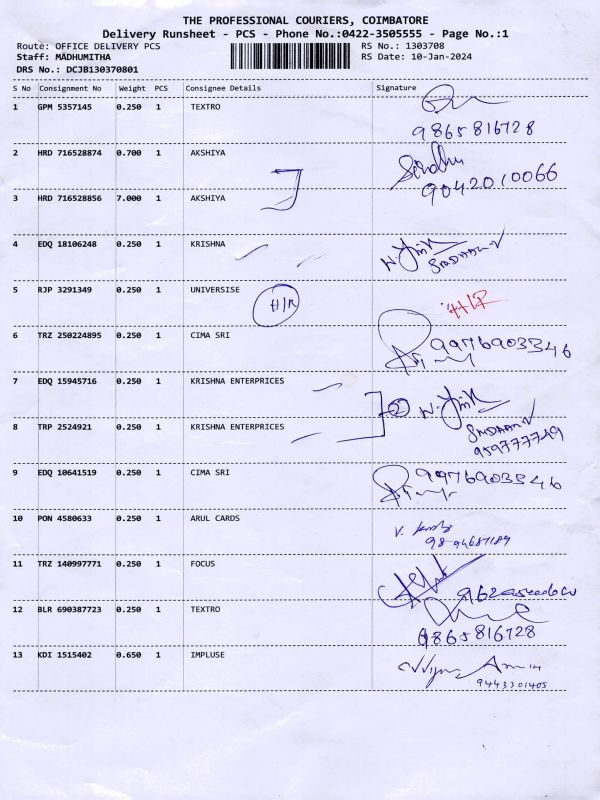 THE PROFESSIONAL COURIERS, COIMBATORE
Delivery Runsheet - PCS - Phone No.:0422-3505555 - Page No.:1
Route: OFFICE DELIVERY PCS RS No.: 1303708
Staff: MADHUMITHA RS Date: 10-Jan-2024
DRS No.: DCJB130370801
S No Consignment No Weight PCS Consignee Details Signature
1 GPM 5357145 0.250 1 TEXTRO
9865816728
2 HRD 716528874 0.700 1 AKSHIYA Sindhu
9042010066
3 HRD 716528856 7.000 1 AKSHIYA
4 EDQ 18106248 0.250 1 KRISHNA
5 RJP 3291349 0.250 1 UNIVERSISE H/R H/R
6 TRZ 250224895 0.250 1 CIMA SRI 9976903546
7 EDQ 15945716 0.250 1 KRISHNA ENTERPRICES
2
8 TRP 2524921 0.250 1 KRISHNA ENTERPRICES
9 EDQ 10641519 0.250 1 CIMA SRI 9976903546
10 PON 4580633 0.250 1 ARUL CARDS V.
11 TRZ 140997771 0.250 1 FOCUS
12 BLR 690387723 0.250 1 TEXTRO
9865816728
13 KDI 1515402 0.650 1 IMPLUSE
9443301405